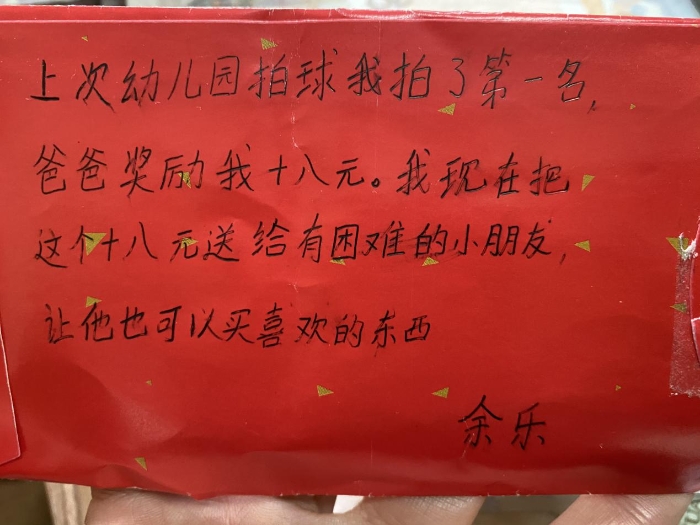 上次幼儿园拍球我拍了第一名,
爸爸奖励我十八元。我现在把
这个十八元送给有困难的小朋友,
让他也可以买喜欢的东西
余乐